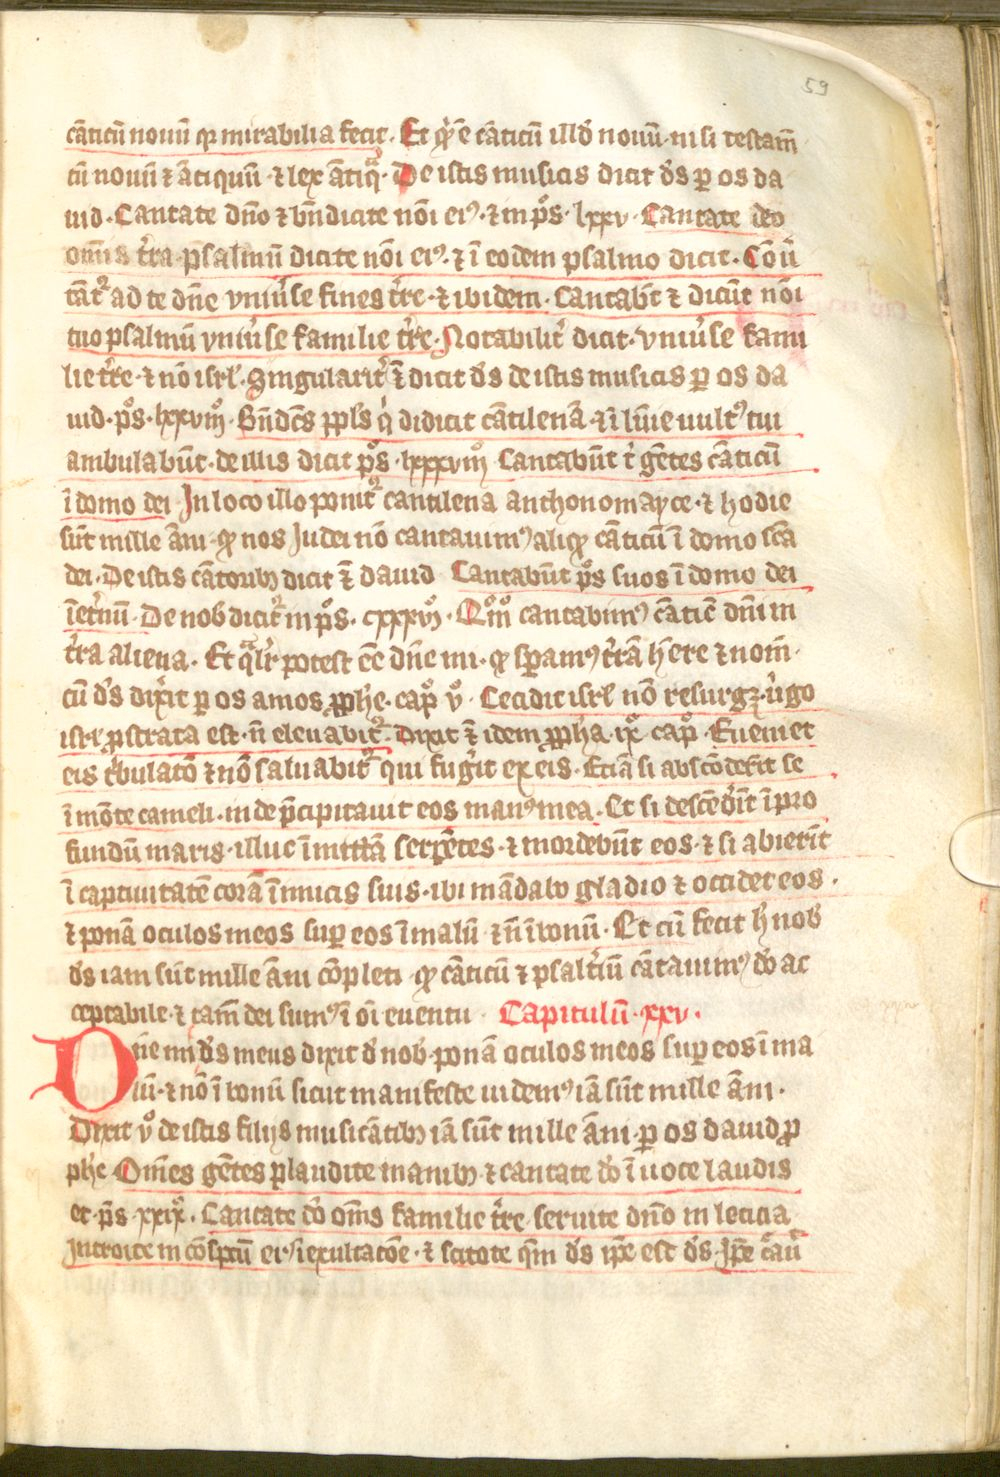 59
cāticū nouū qr mirabilia fecit. Et qͥ ē cāticū illd nouū nisi testam̄
tū nouū ⁊ ātiquū ⁊ lex ātiqᷓ. De istis musicis dicit ds̄ p os da
uid. Cantate dn̄o ⁊ bn̄dicite nōi eiꝰ ⁊ in ps̄. lxxv. Cantate deo
om̄is tr̄a psalmū dicite nōi eiꝰ. ⁊ ī eodem psalmo dicit. Cōū
tāt᷑ ad te dn̄e vniūse fines tr̄e. ⁊ ibidem. Cantabt̄ ⁊ dicūt nōi
tuo psalmū vniūse familie tr̄e. Notabilit᷑ dicit. vniūse fami
lie tr̄e. ⁊ nō isrl̄. Singularit᷑ ⁊̄ dicit ds̄ de istis musicis p os da
uid. ps̄. lxxxviij. Bn̄dcs̄ ppl̄s qͥ didicit cātilenā. ⁊ ī lūīe uultꝰ tui
ambulabūt. de illis dicit ps̄. lxxxviij Cantabūt t᷑ gētes cāticū
ī domo dei In loco illo ponit᷑ cantilena anthonomayce. ⁊ hodie
sūt mille āni. qͩ nos Iudei nō cantauimꝰ aliqͩ cāticū ī domo scā
dei. De istis cātoribꝫ dicit ⁊̄ dauid Cantabūt ps̄ suos ī domo dei
īet᷑nū. De nob dicit᷑ in ps̄. cxxxvj. Qūo cantabimꝰ cāticū dn̄i in
tr̄a aliena. Et qᷓlr̄ potest eē dn̄e mi. qͩ spamꝰ tr̄ā hēre ⁊ nom̄
cū ds̄ dixit p os amos pph̄e. cap̊ v̊. Cecidit isrl̄ nō resurgꝫ. ūgo
isrl̄ prostrata est. n̄ eleuabit᷑. Dixit ⁊̄ idem ppha ix̊ cap̊. Eueniet
eis tͥbulatō ⁊ nō saluabit᷑ qui fug̓it ex eis. Etiā si abscōdr̄it se
ī mōte cameli. inde p̄cipitauit eos manꝰ mea. Et si descēdr̄īt ī pro
fundū maris. illuc īmittā serpētes. ⁊ mordebūt eos. ⁊ si abierīt
ī captiuitatē corā īimicis suis. ibi mādabo gladio ⁊ occidet eos.
⁊ ponā oculos meos sup eos ī malū ⁊ n̄ ī bonū. Et cū fecit h̄ nob
ds̄ iam sūt mille āni cōpleti. qͩ cāticū ⁊ psalt᷑iū cātauimꝰ do ac
ceptabile. ⁊ tam̄ dei sumꝰ ī oī euentu. Capitulū. xxv.
Dn̄e mi ds̄ meus dixit d̄ nob. ponā oculos meos sup eos ī ma
lū. ⁊ nō ī bonū sicut manifeste uidemꝰ iā sūt mille āni.
Dixit v̊ de istis filijs musicātibꝫ iā sūt mille āni. p os dauid p
ph̄e Om̄es gētes plaudite manibꝫ ⁊ cantate do ī uoce laudis
et ps̄ xxix̊. Cantate do om̄s familie tr̄e. seruite dn̄o in leticia
Introite in cōspctū eiꝰ ī exultacōe. ⁊ scitote qm̄ ds̄ ip̄e est ds̄. Ip̄e cāū